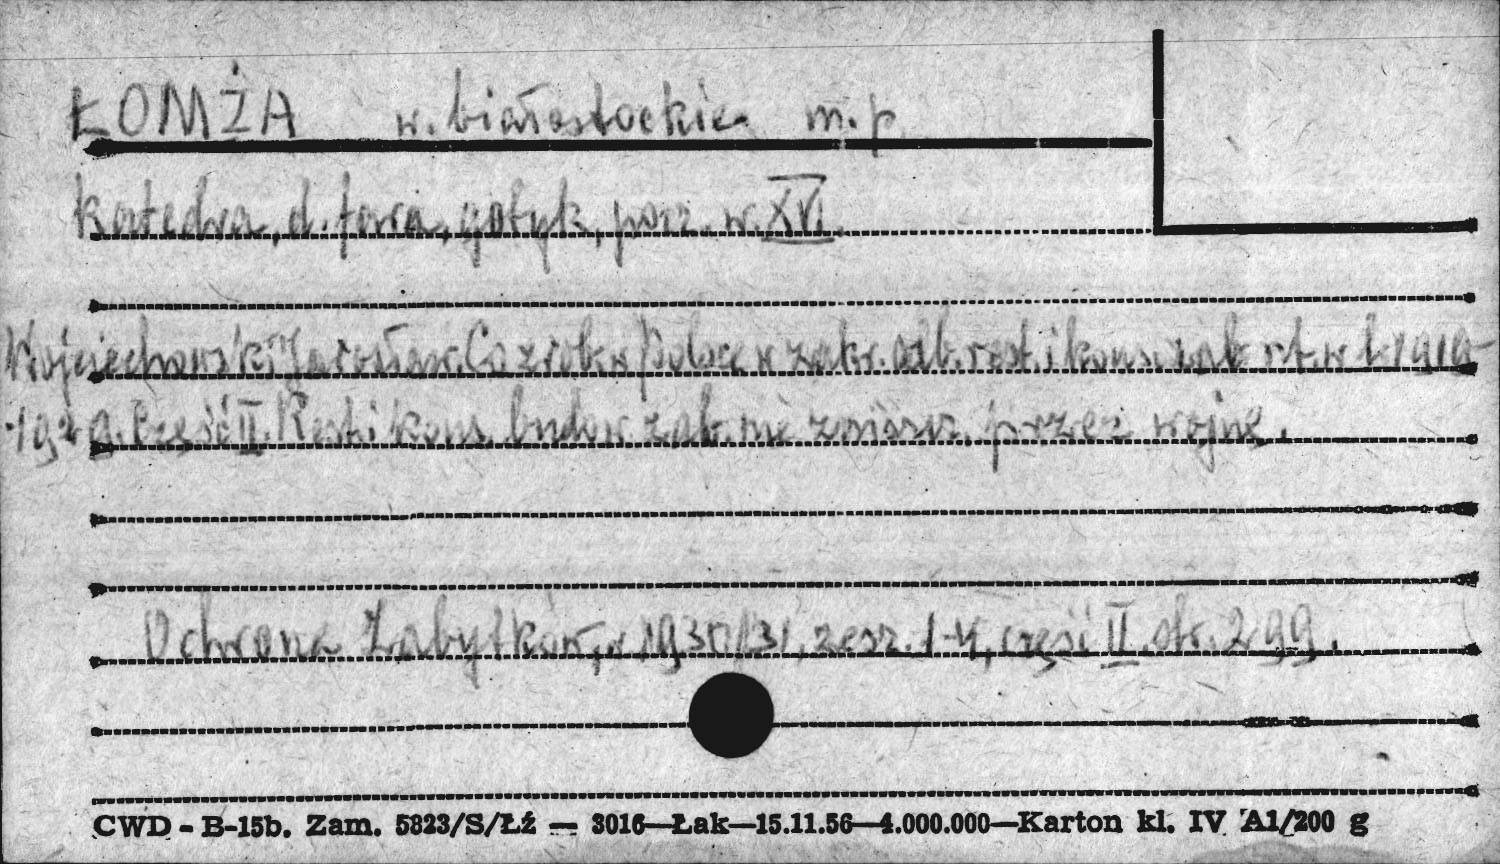 ŁOMŻA w. białostockie m. p
Katedra, d. fara, gotyk, pocz. w. XVI.
Wojciechowski Jarosław. Co zrobk. w Polsce w zakr. odb. rest. i kons. zab. szt. w l. 1919-
-1929. Część II. Rest. i kons. budow. zab. nie zniszcz. przez wojnę.
Ochrona Zabytków, 1930/31, zesz. 1-4, część II. str. 299.
CWD - B-15b. Zam. 5823/S/Łź — 3016—Łak—15.11.56—4.000.000—Karton kl. IV A1/200 g